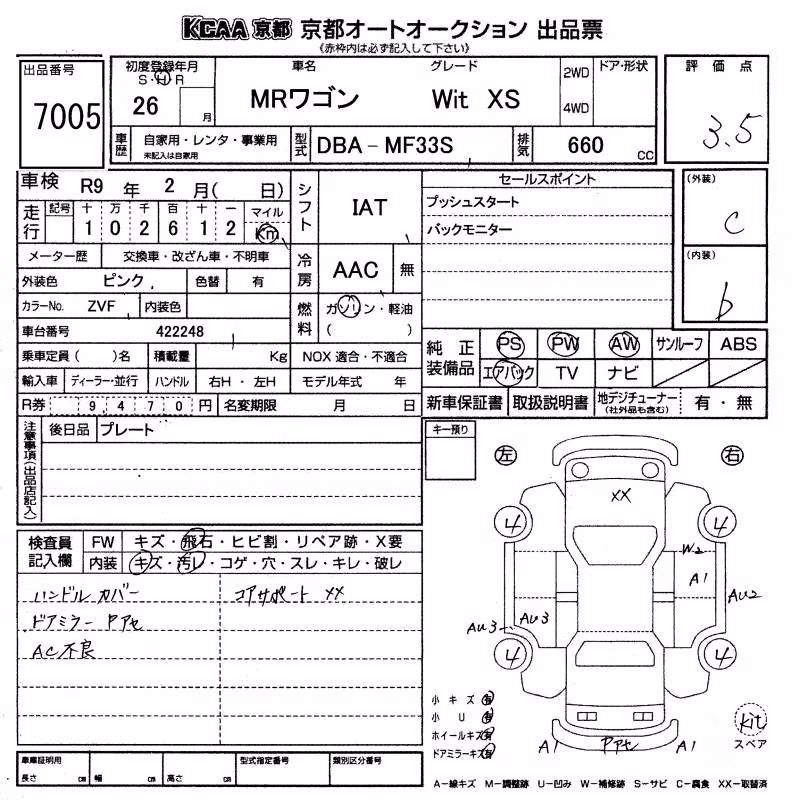 KCAA 京都 京都オートオークション 出品票
《赤枠内は必ず記入して下さい》
出品番号
7005
初度登録年月
S・H・R
26 月
車名 グレード
MRワゴン Wit XS
2WD
4WD
ドア・形状
評価点
3.5
車歴 自家用・レンタ・事業用
未記入は自家用
型式 DBA－MF33S
排気 660 CC
車検 R9 年 2 月( 日)
走行 記号 十 万 千 百 十 一 マイル
1 0 2 6 1 2 Km
メーター歴 交換車・改ざん車・不明車
外装色 ピンク 色替 有
カラーNo. ZVF 内装色
車台番号 422248
乗車定員( )名 積載量 Kg
輸入車 ディーラー・並行 ハンドル 右H・左H
R券 9,470円 名変期限 月 日
シフト IAT
冷房 AAC 無
燃料 ガソリン・軽油
( )
NOX 適合・不適合
モデル年式 年
セールスポイント
プッシュスタート
バックモニター
(外装)
C
(内装)
b
純正装備品 PS PW AW サンルーフ ABS
エアバック TV ナビ
新車保証書 取扱説明書 地デジチューナー
(社外品も含む) 有・無
注意事項(出品店記入)
後日品 プレート
キー預り
検査員記入欄
FW キズ・飛石・ヒビ割・リペア跡・X要
内装 キズ・汚レ・コゲ・穴・スレ・キレ・破レ
ハンドル カバー コアサポート XX
ドアミラー Pアセ
AC不良
左 右
XX
4 4
W2
A1
AU2
AU3 AU3
4 4
小キズ 有
小U 有
ホイールキズ 有
ドアミラーキズ 有
A1 Pアセ A1
Kit
スペア
車庫証明用
長さ cm 幅 cm 高さ cm
型式指定番号 類別区分番号
A－線キズ M－調整跡 U－凹み W－補修跡 S－サビ C－腐食 XX－取替済